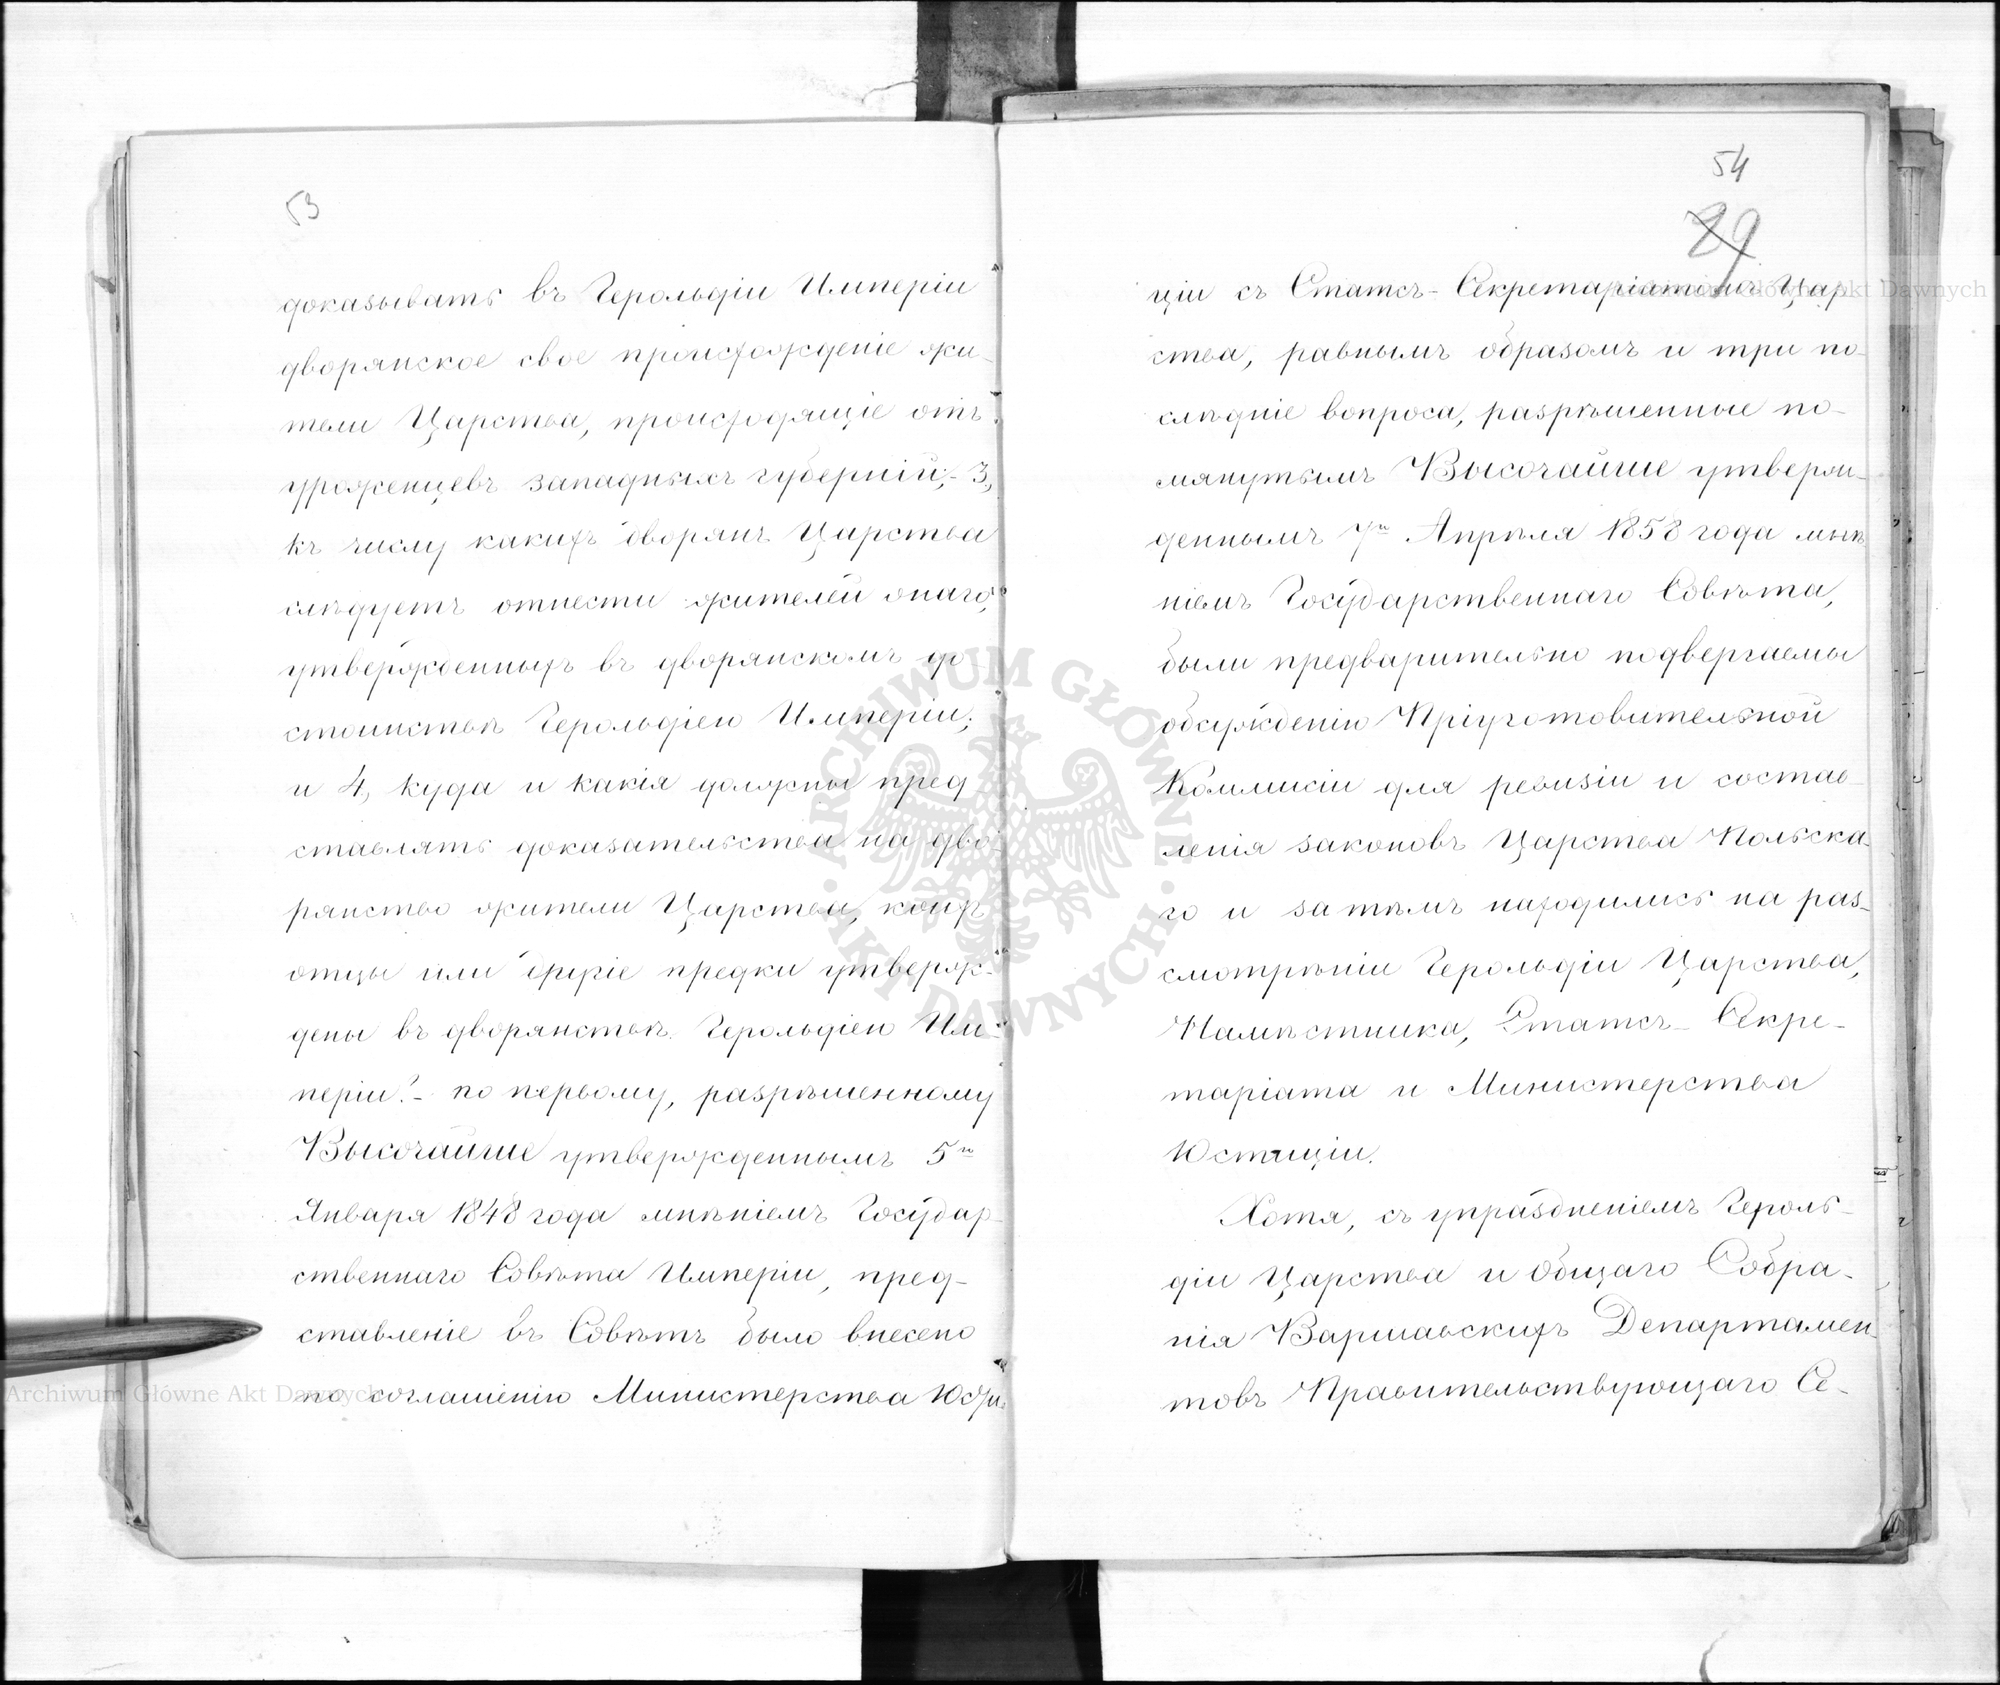 53
доказывать въ Герольдіи Имперіи
дворянское свое происхожденіе жи-
тели Царства, происходящіе отъ
уроженцевъ западныхъ губерній;- 3,
къ числу какихъ дворянъ Царства
слѣдуетъ отнести жителей онаго,
утвержденныхъ въ дворянскомъ до-
стоинствѣ Герольдіею Имперіи;
и 4, куда и какія должны пред-
ставлять доказательства на дво-
рянство жители Царства, коихъ
отцы или другіе предки утверж-
дены въ дворянствѣ Герольдіею Им-
періи?- по первому, разрѣшенному
Высочайше утвержденнымъ 5го
Января 1848 года мнѣніемъ Государ-
ственнаго Совѣта Имперіи, пред-
ставленіе въ Совѣтъ было внесено
по соглашенію Министерства Юсти-
54
29
ціи съ Статсъ-Секретаріатомъ Цар
ства, равнымъ образомъ и три по-
слѣдніе вопроса, разрѣшенные по-
мянутымъ Высочайше утверж-
деннымъ 7го Апрѣля 1858 года мнѣ
ніемъ Государственнаго Совѣта,
были предварительно подвергаемы
обсужденію Пріуготовительной
Коммисіи для ревизіи и состав-
ленія законовъ Царства Польска-
го и за тѣмъ находились на раз-
смотрѣніи Герольдіи Царства,
Намѣстника, Статсъ-Секре-
таріата и Министерства
Юстиціи.
Хотя, съ упраздненіемъ Героль-
діи Царства и Общаго Собра-
нія Варшавскихъ Департамен-
товъ Правительствующаго Се-
Archiwum Główne Akt Dawnych
Archiwum Główne Akt Dawnych
ARCHIWUM GŁÓWNE
AKT DAWNYCH